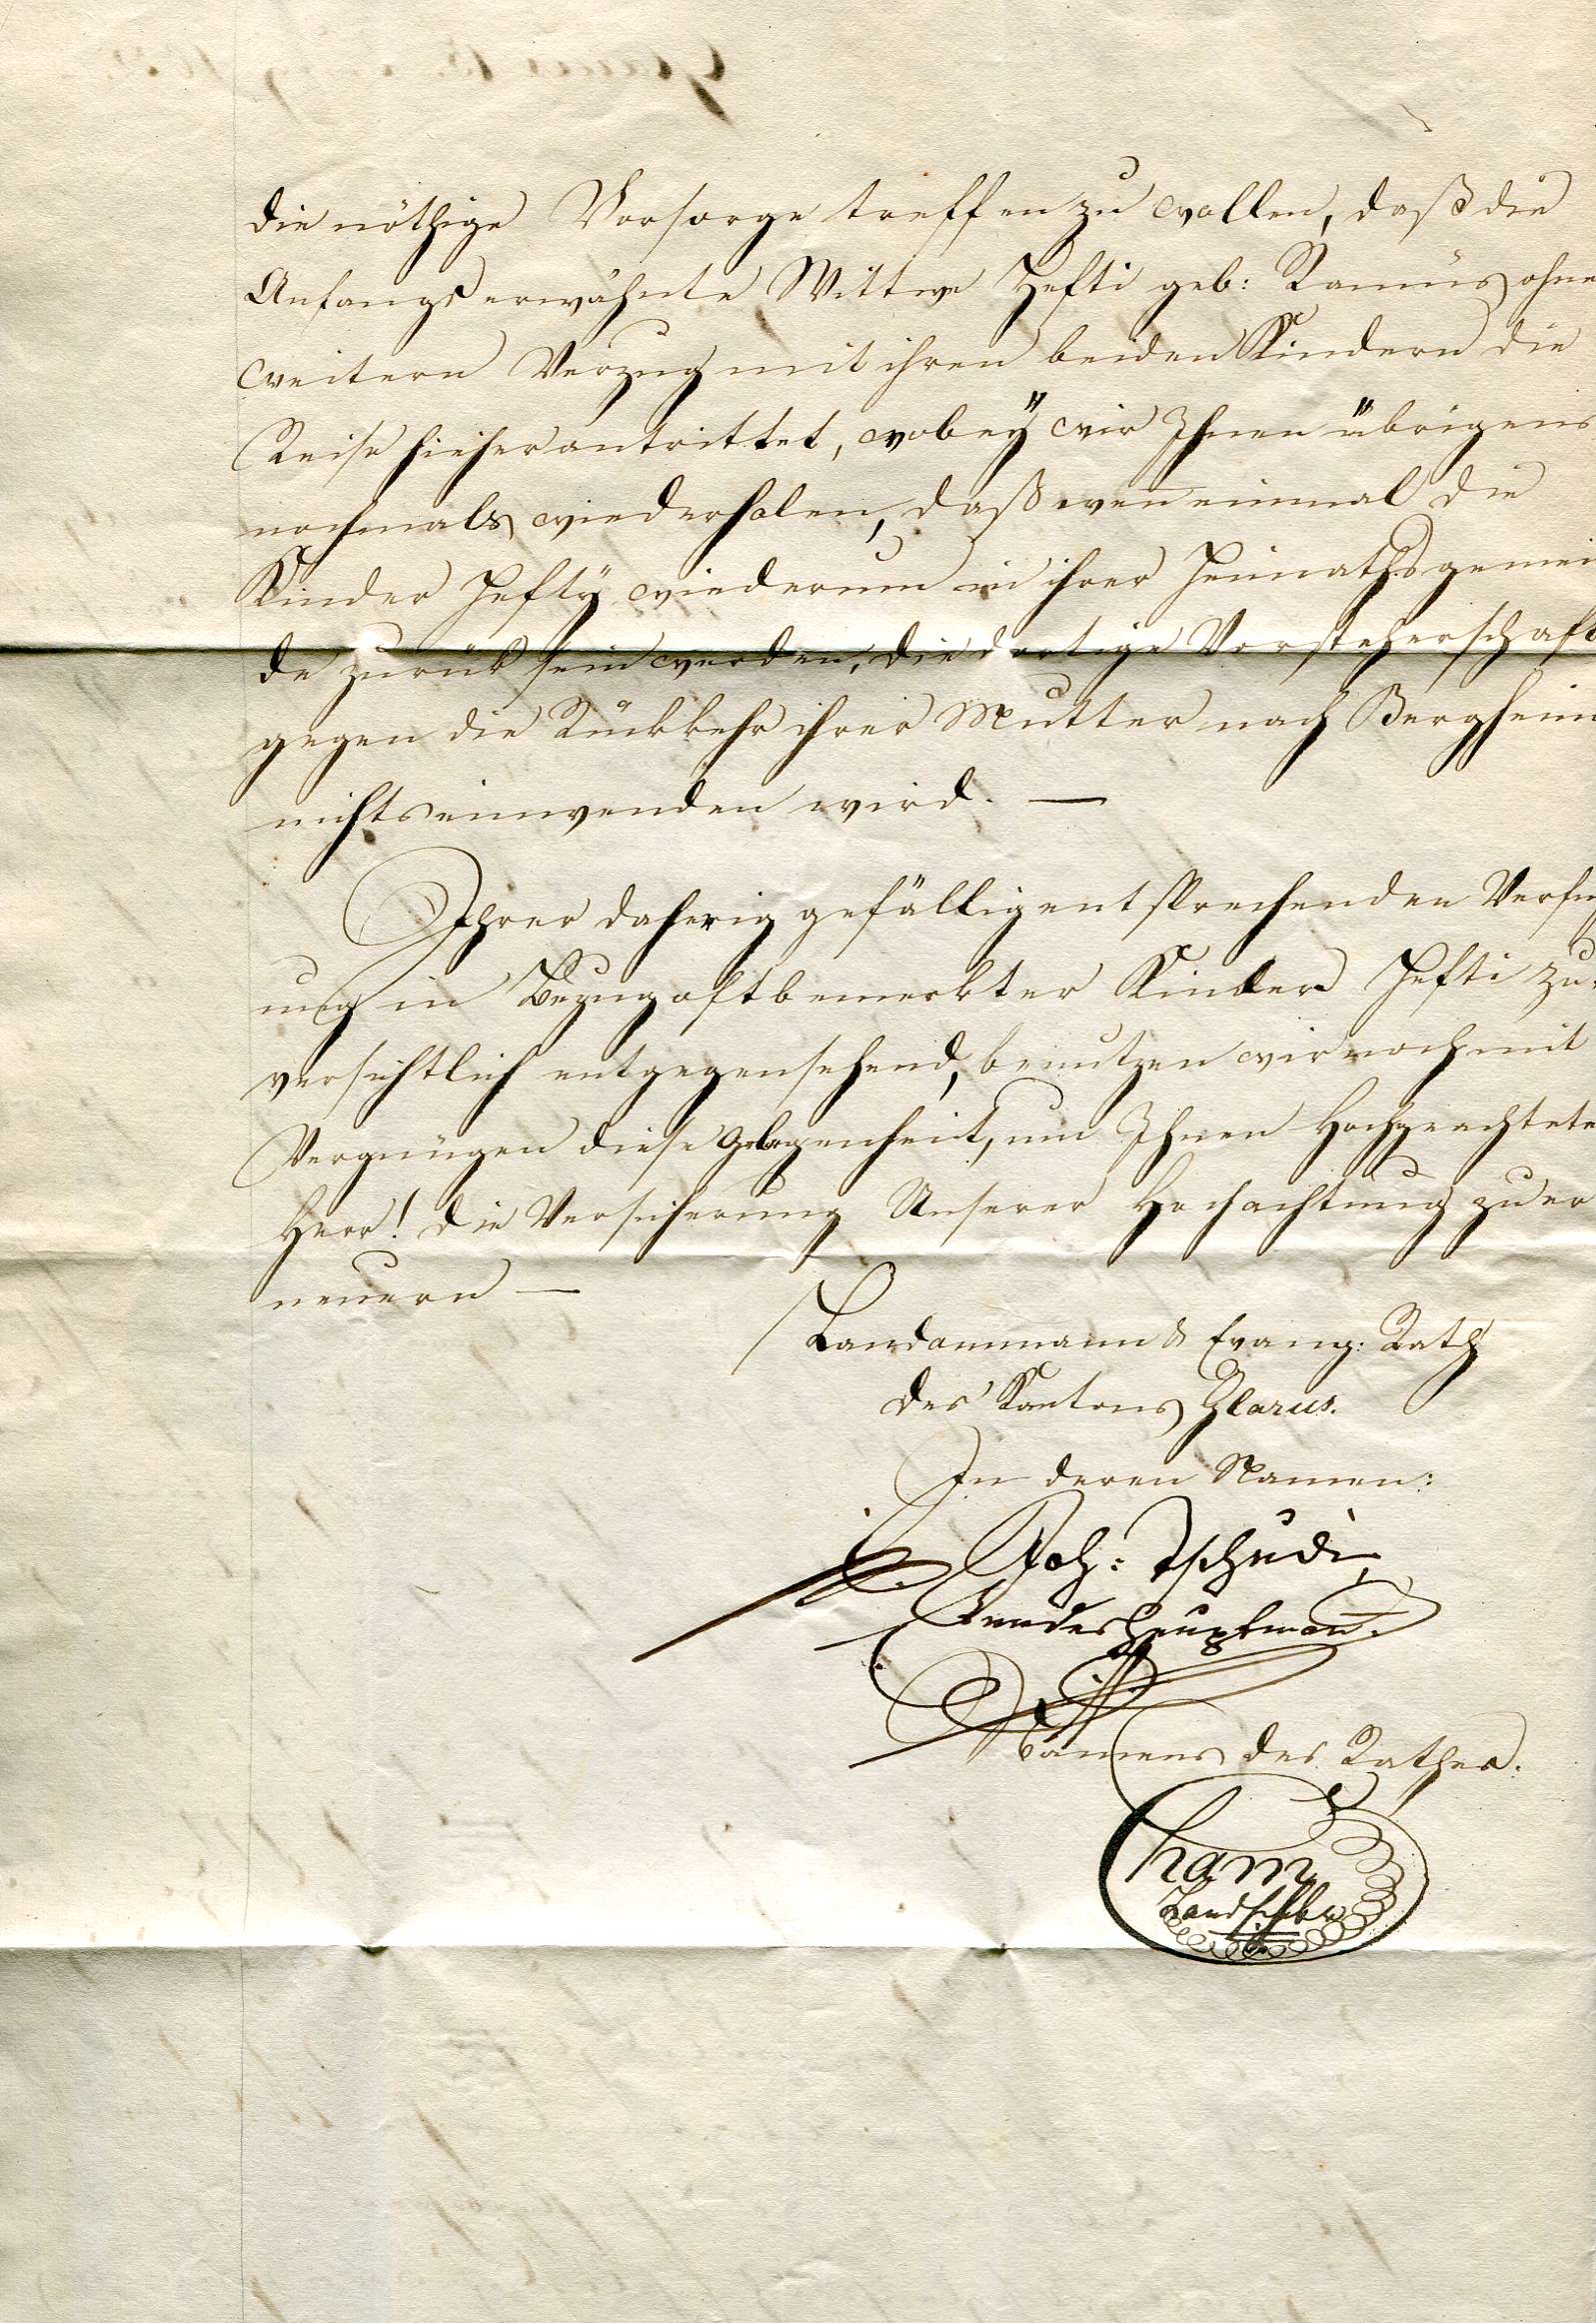 die nöthige Vorsorge treffen zu wollen, daß die
Anfangs erwähnte Wittwe Hefti geb: Ramüs ohne
weitern Verzug mit ihren beiden Kindern die
Reise hieher antrittet, wobeÿ wir Ihnen übrigens
nochmals wiederholen, daß wen̄ einmal die
Kinder Heftÿ wiederum in ihrer Heimathsgemein
de zurük sein werden, die dortige Vorsteherschaft
gegen die Rükkehr ihrer Mutter nach Bergheim
nichts einwenden wird. —
Ihrer daherig gefällig entsprechenden Verfüg
ung in Bezug oftbemerkter Kinder Hefti zu-
versichtlich entgegensehend, benutzen wir noch mit
Vergnügen diese Gelegenheit, um Ihnen Hochgeachtete
Herr! die Versicherung Unserer Hochachtung zu er
neuern —
Landammann & Evang: Rath
des Kantons Glarus.
In deren Namen:
Joh: Tschudi,
Landeshauptman̄.
Namens des Rathes.
Cham
Landschbr